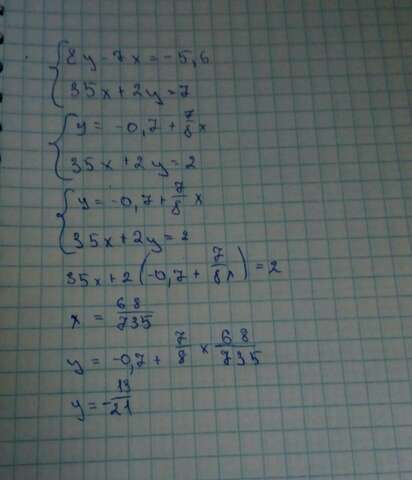 8y - 7x = -5,6
35x + 2y = 7
y = -0,7 + 7/8 x
35x + 2y = 2
y = -0,7 + 7/8 x
35x + 2y = 2
35x + 2(-0,7 + 7/8 x) = 2
x = 68/735
y = -0,7 + 7/8 × 68/735
y = -13/21